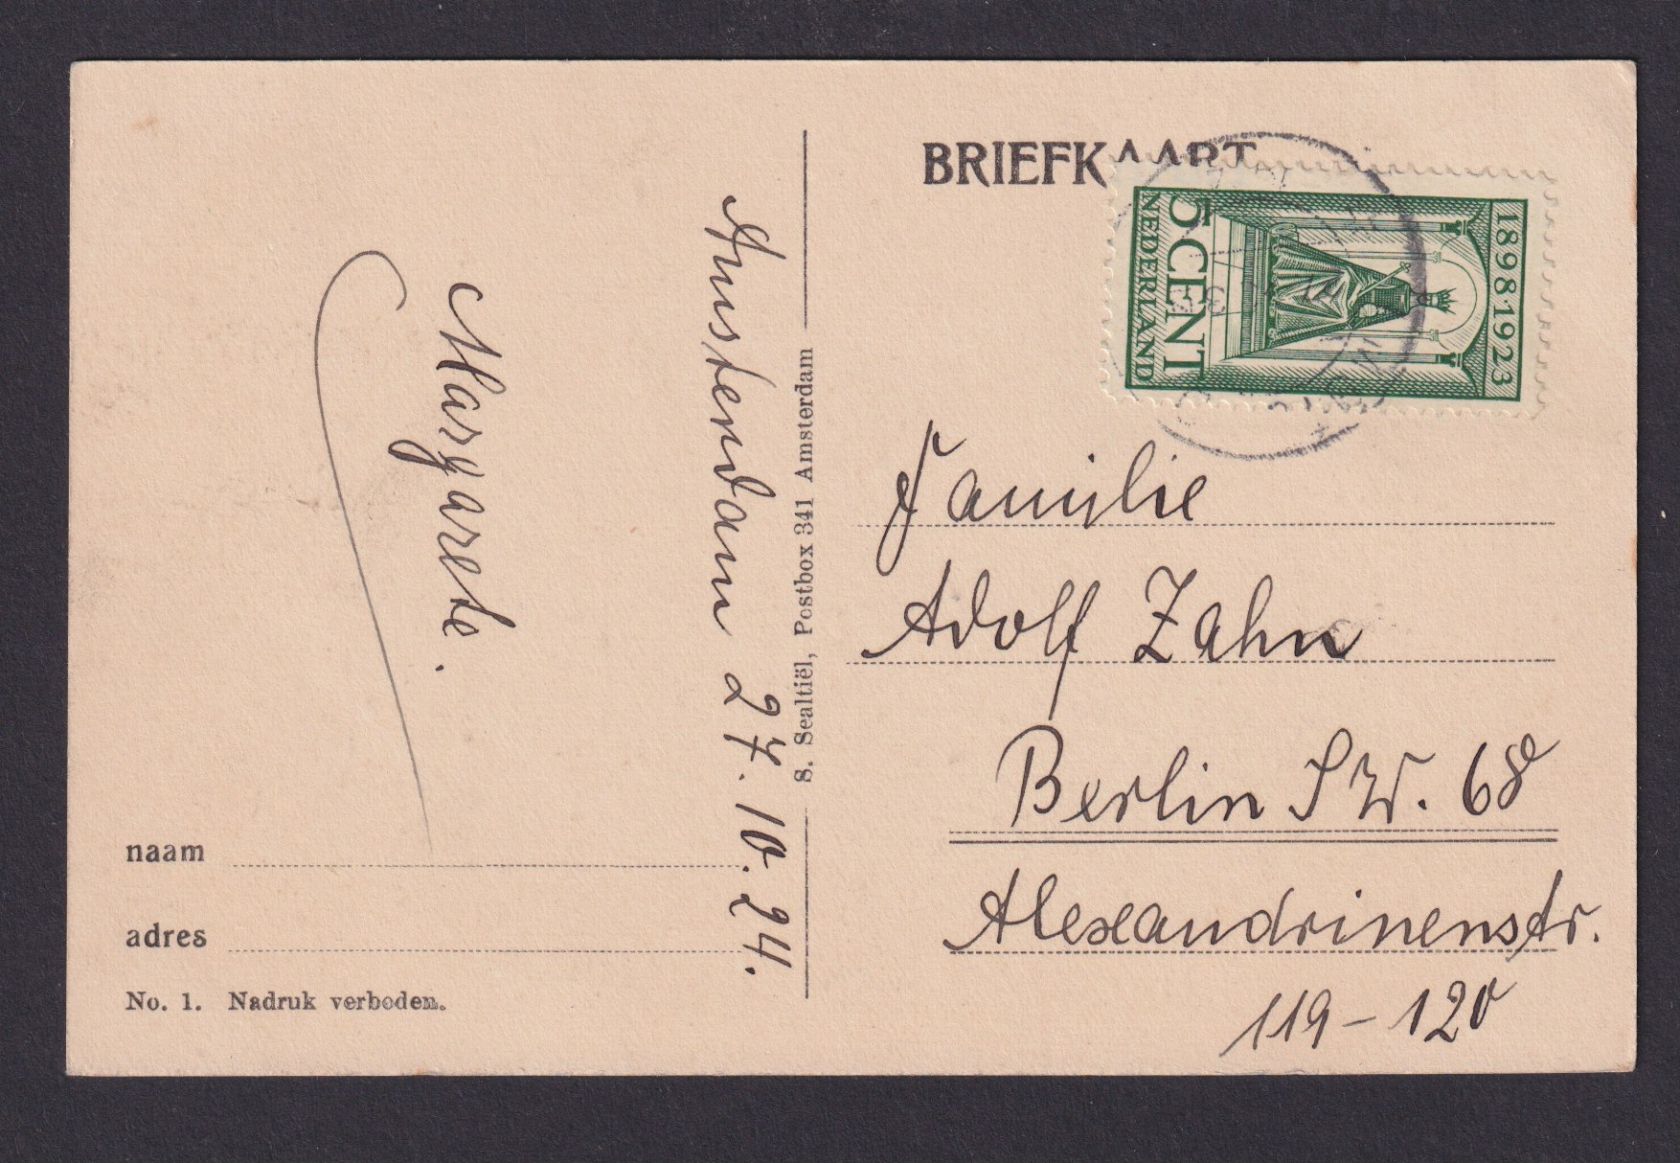 BRIEFKAART
1898 1923
5 CENT
NEDERLAND
Amsterdam 27.10.24.
Margarete.
S. Sealtiël, Postbox 341 Amsterdam
Familie
Adolf Zahn
Berlin SW. 68
Alexandrinenstr.
119-120
naam
adres
No. 1. Nadruk verboden.